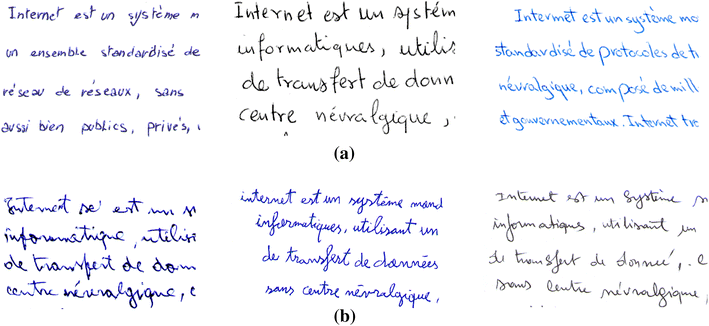 Internet est un système m
un ensemble standardisé de
réseau de réseaux, sans
aussi bien publics, privés,
Internet est un systèm
informatiques, utilis
de transfert de donn
centre névralgique,
Internet est un système mo
standardisé de protocoles de t
névralgique, composé de mill
et gouvernementaux. Internet tre
(a)
Internet se est un s
informatique, utilisi
de transfert de donn
centre névralgique, c
internet est un système mond
informatiques, utilisant un
de transfert de données
sans centre névralgique,
Internet est un système m
informatiques, utilisant un
de transfert de donneé,. c
sans centre névralgique,
(b)